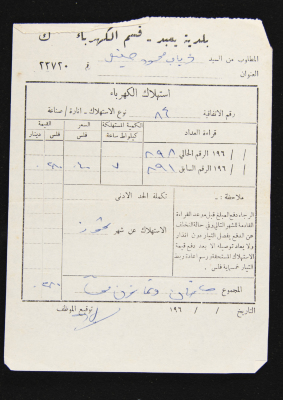 بلدية يعبد - قسم الكهرباء ك
المطلوب من السيد ذياب
نمرة ٢٢٧٢٠
العنوان
استهلاك الكهرباء
رقم الاتفاقية ٨٤ نوع الاستهلاك - انارة / صناعة
قراءة العداد
الكمية المستهلكة كيلواط ساعة
السعر فلس
القيمة
فلس دينار
/ / ١٩٦ الرقم الحالي ٨٩٨
/ / ١٩٦ الرقم السابق ٨٩١
٧
تكملة الحد الادنى
ملاحظة :
الرجاء دفع المبلغ قبل موعد القراءة
القادمة للشهر التالي وفي حالة التخلف
عن الدفع يفصل التيار دون انذار
ولا يعاد توصيله الا بعد دفع قيمة
الاستهلاك المستحقة ورسم اعادة ربط
التيار خمسماية فلس
الاستهلاك عن شهر تموز
المجموع
التاريخ / / ١٩٦ توقيع الموظف